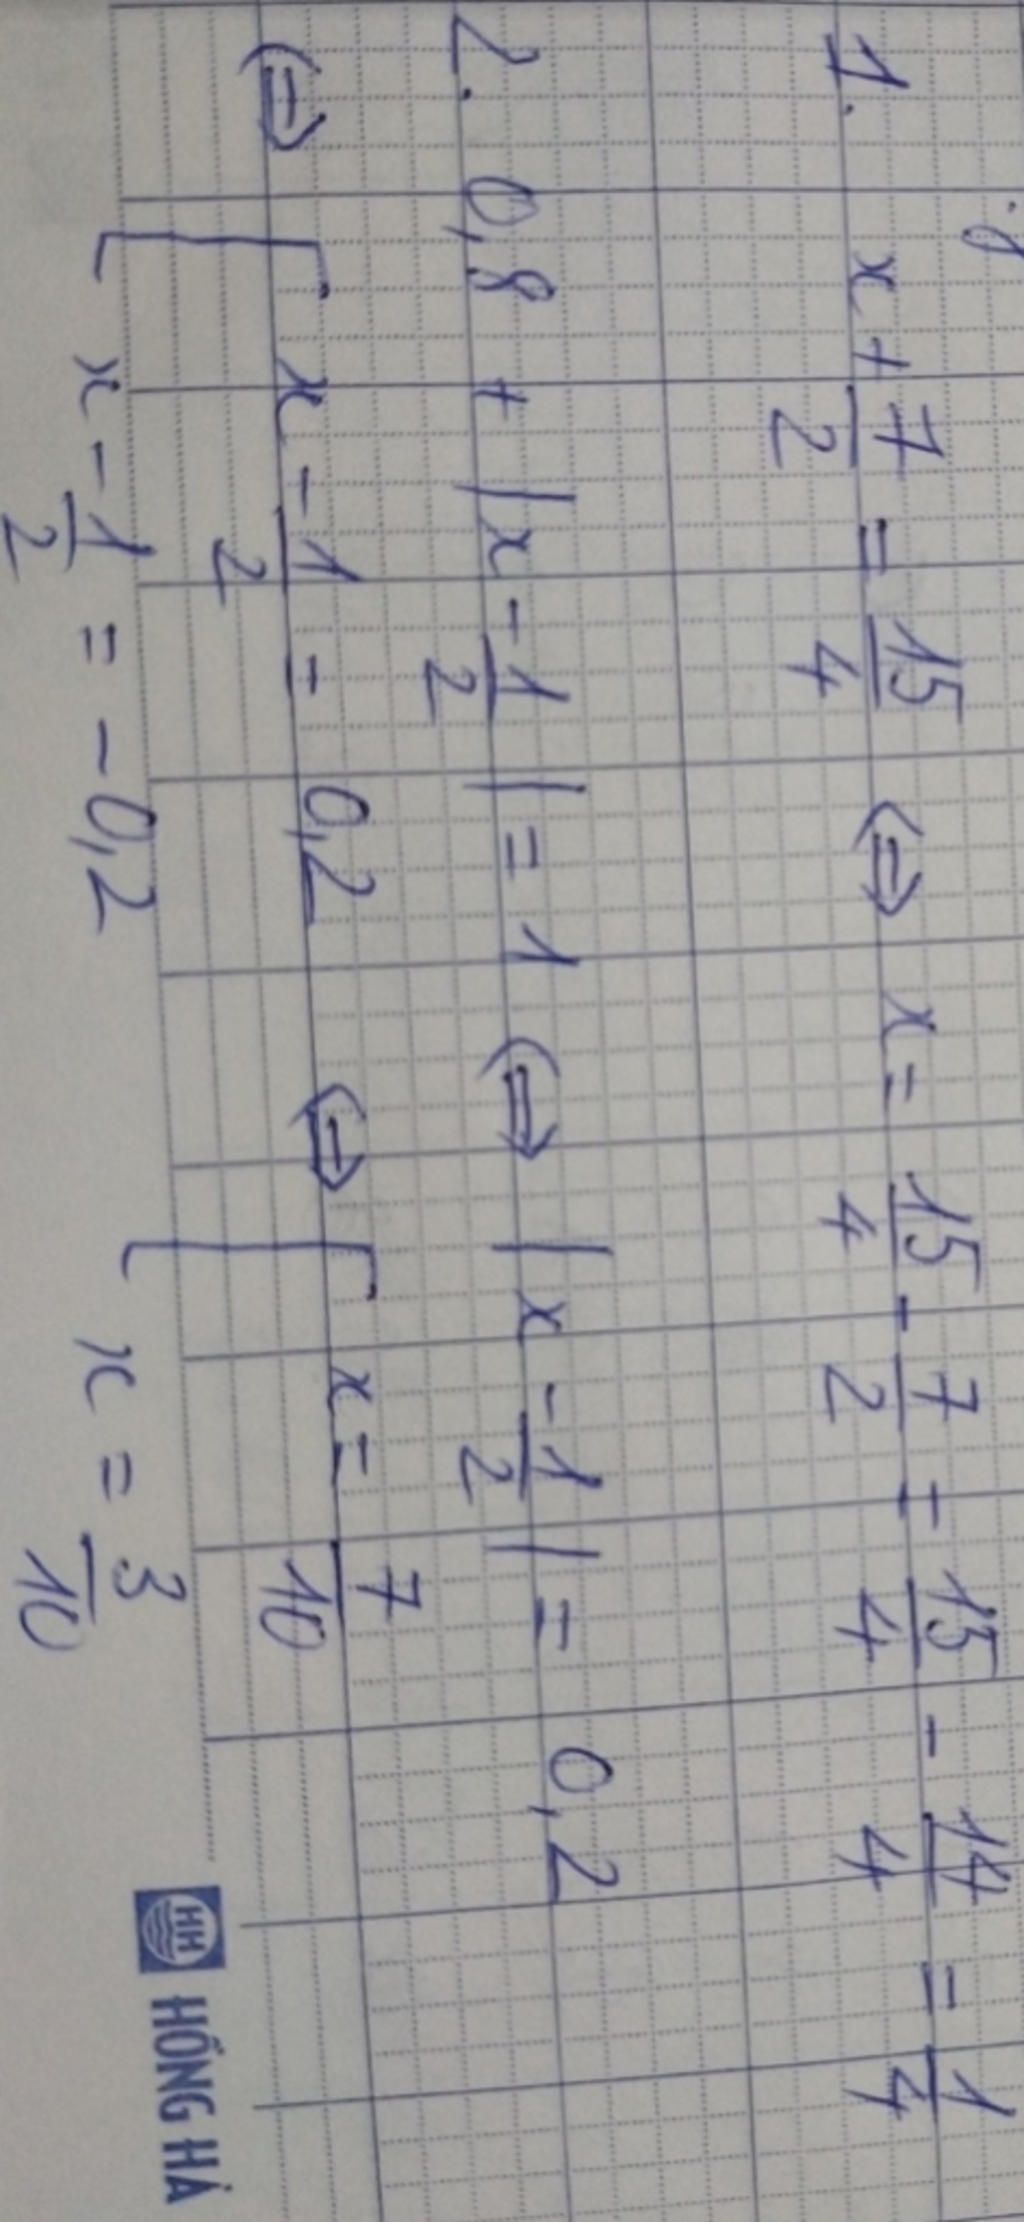 1. x + 7/2 = 15/4 ⇔ x = 15/4 - 7/2 = 15/4 - 14/4 = 1/4
2. 0,8 + |x - 1/2| = 1 ⇔ |x - 1/2| = 0,2
⇔ [ x - 1/2 = 0,2 ⇔ [ x = 7/10
x - 1/2 = -0,2 x = 3/10
HH HỒNG HÀ